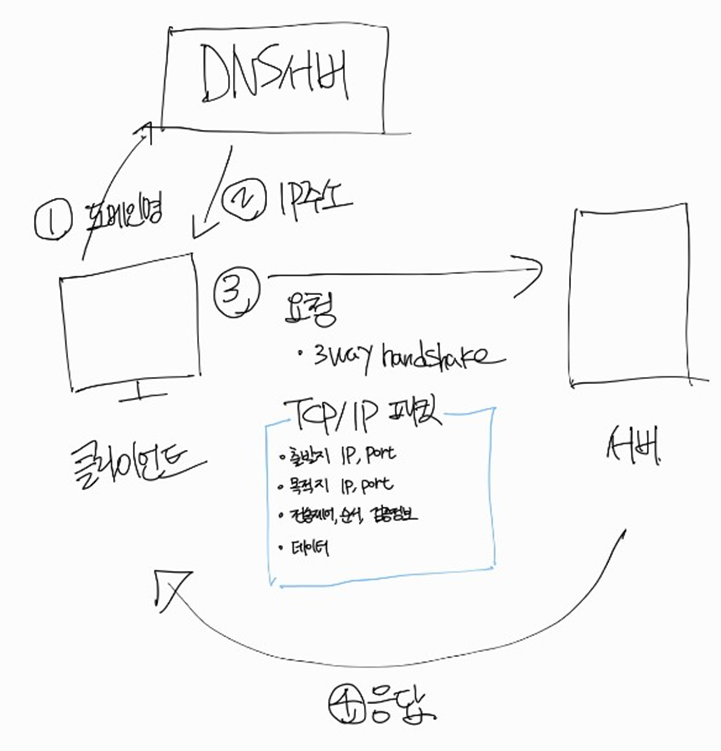 DNS서버
① 도메인명
② IP주소
③
요청
· 3way handshake
TCP/IP 패킷
· 출발지 IP, Port
· 목적지 IP, port
· 전송제어, 순서, 검증정보
· 데이터
클라이언트
서버
④ 응답